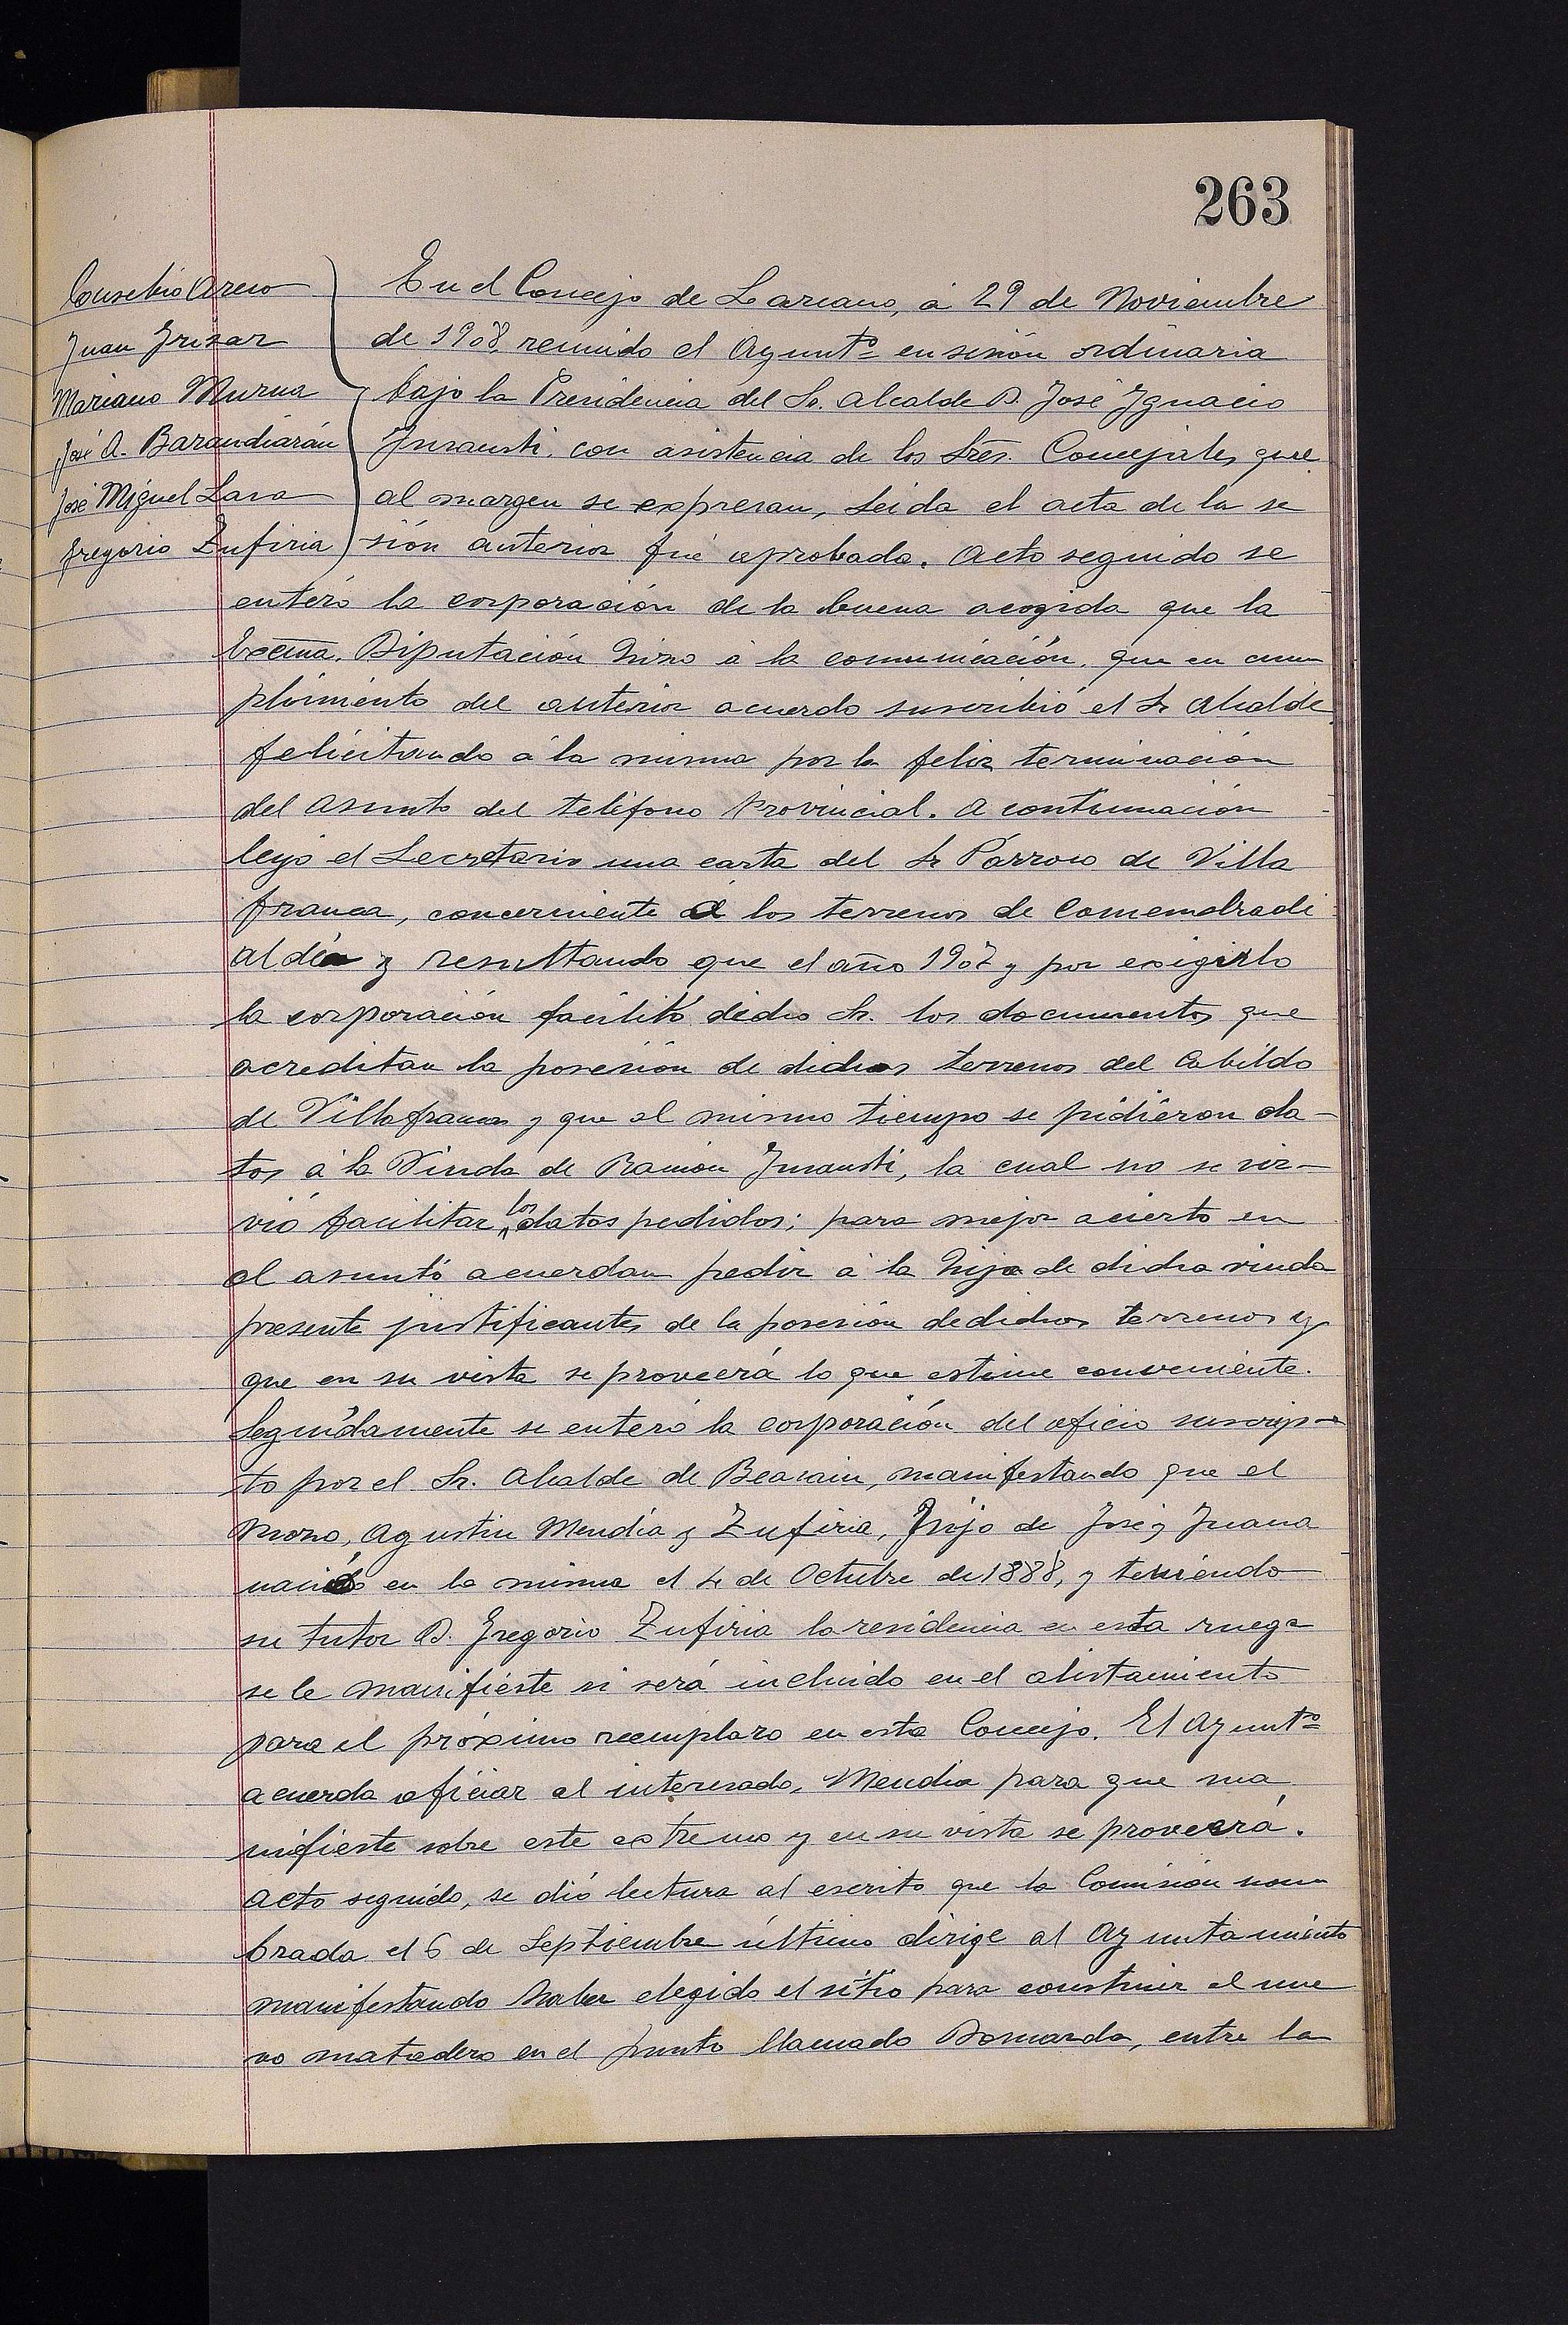 263
Eusebio Arcco
Juan Irizar
Mariano Murua
José A. Barandiarán
José Miguel Lasa
Gregorio Zufiria
En el Concejo de Lazcano, á 29 de Noviembre
de 1908, reunido el Ayuntº en sesión ordinaria
bajo la Presidencia del Sr. Alcalde D. José Ignacio
Insausti, con asistencia de los Sres. Concejales, que
al margen se expresan, leida el acta de la se
sión anterior fué aprobada. Acto seguido se
enteró la corporación de la buena acogida que la
Excma. Diputación hizo á la comunicación, que en cum
plimiento del anterior acuerdo suscribió el Sr Alcalde
felicitando á la misma por la feliz terminación
del asunto del teléfono Provincial. A continuación
leyó el Secretario una carta del Sr Párroco de Villa
franca, concerniente á los terrenos de Comemdradi
aldea y resultando que el año 1907 y por exigirlo
la corporación facilitó dicho Sr. los documentos que
acreditan la posesión de dichos terrenos del Cabildo
de Villafranca y que al mismo tiempo se pidieron da-
tos á la Viuda de Ramón Insausti, la cual no se sir-
vió facilitar los datos pedidos; para mejor acierto en
el asunto acuerdan pedir á la hija de dicha viuda
presente justificantes de la posesión de dichos terrenos y
que en su vista se proveerá lo que estime conveniente.
Seguidamente se enteró la corporación del oficio suscrip-
to por el Sr. Alcalde de Beasain, manifestando que el
mozo, Agustin Mendia y Zufiria, hijo de José y Juana
nacido en la misma el 4 de Octubre de 1888, y teniendo
su tutor D. Gregorio Zufiria la residencia en esta ruega
se le manifieste si será incluido en el alistamiento
para el próximo reemplazo en esta Concejo. El Ayuntº
acuerda oficiar al interesado, Mendia para que ma
nifieste sobre este extremo y en su vista se proveerá.
Acto seguido, se dió lectura al escrito que la Comisión nom
brada el 6 de Septiembre último dirige al Ayuntamiento
manifestando haber elegido el sitio para construir el nue
vo matadero en el punto llamado Domarda, entre la